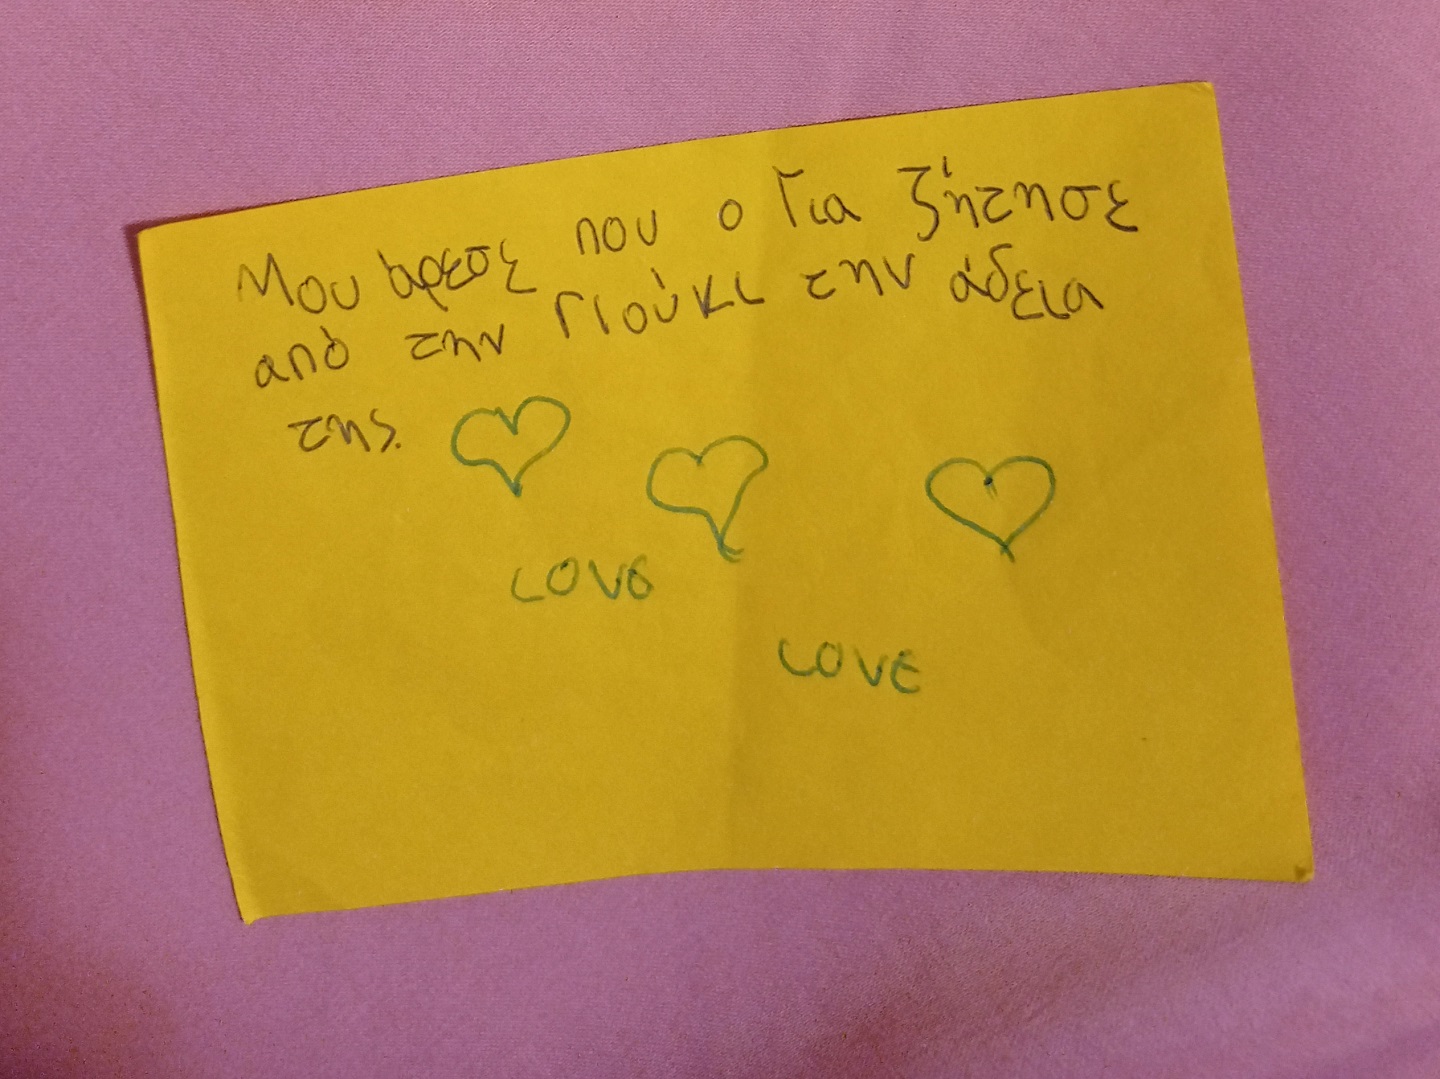 Μου άρεσε που ο Για ζήτησε
από την Γιούκι την άδεια
της.
LOVE
LOVE